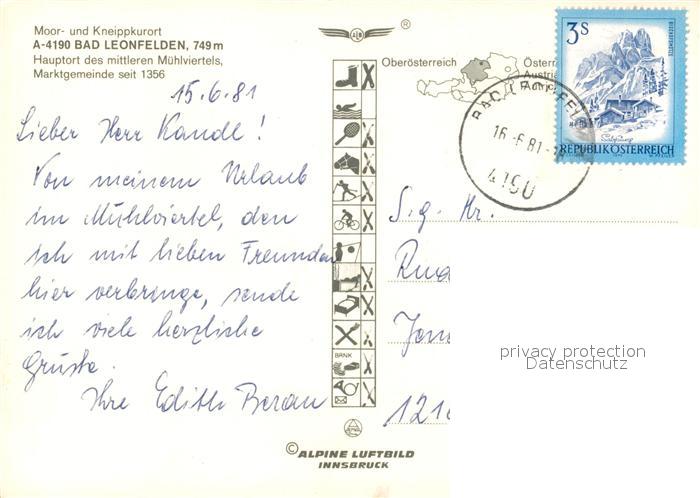 Moor- und Kneippkurort
A-4190 BAD LEONFELDEN, 749 m
Hauptort des mittleren Mühlviertels,
Marktgemeinde seit 1356
15.6.81
Lieber Herr Kandl!
Von meinem Urlaub
im Mühlviertel, den
ich mit lieben Freunden
hier verbringe, sende
ich viele herzliche
Grüße.
Ihre Edith Beran
®
Oberösterreich
BANK
© ALPINE LUFTBILD
INNSBRUCK
Österr
Austria
3S
REPUBLIK ÖSTERREICH
BAD LEONFELD
16.-6.81-
4190
S.g. Hr.
1210
privacy protection
Datenschutz